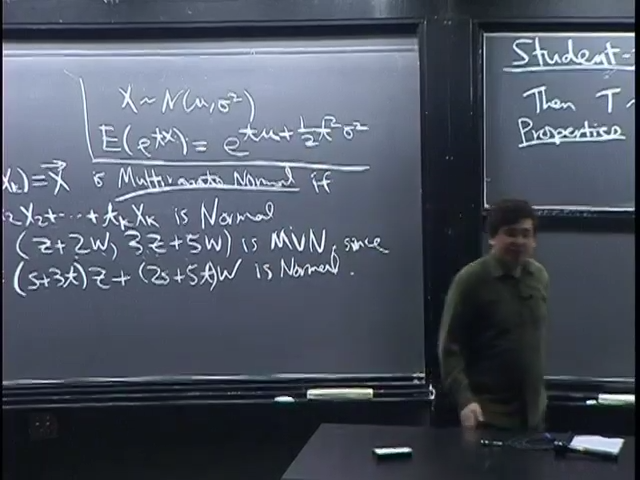 X ~ N(μ, σ²)
E(e^{tX}) = e^{tμ + ½t²σ²}
X_k) = X⃗ is Multivariate Normal if
₂X₂ + ⋯ + t_k X_k is Normal
(Z+2W, 3Z+5W) is MVN, since
(s+3t)Z + (2s+5t)W is Normal.
Student-
Then T ~
Properties